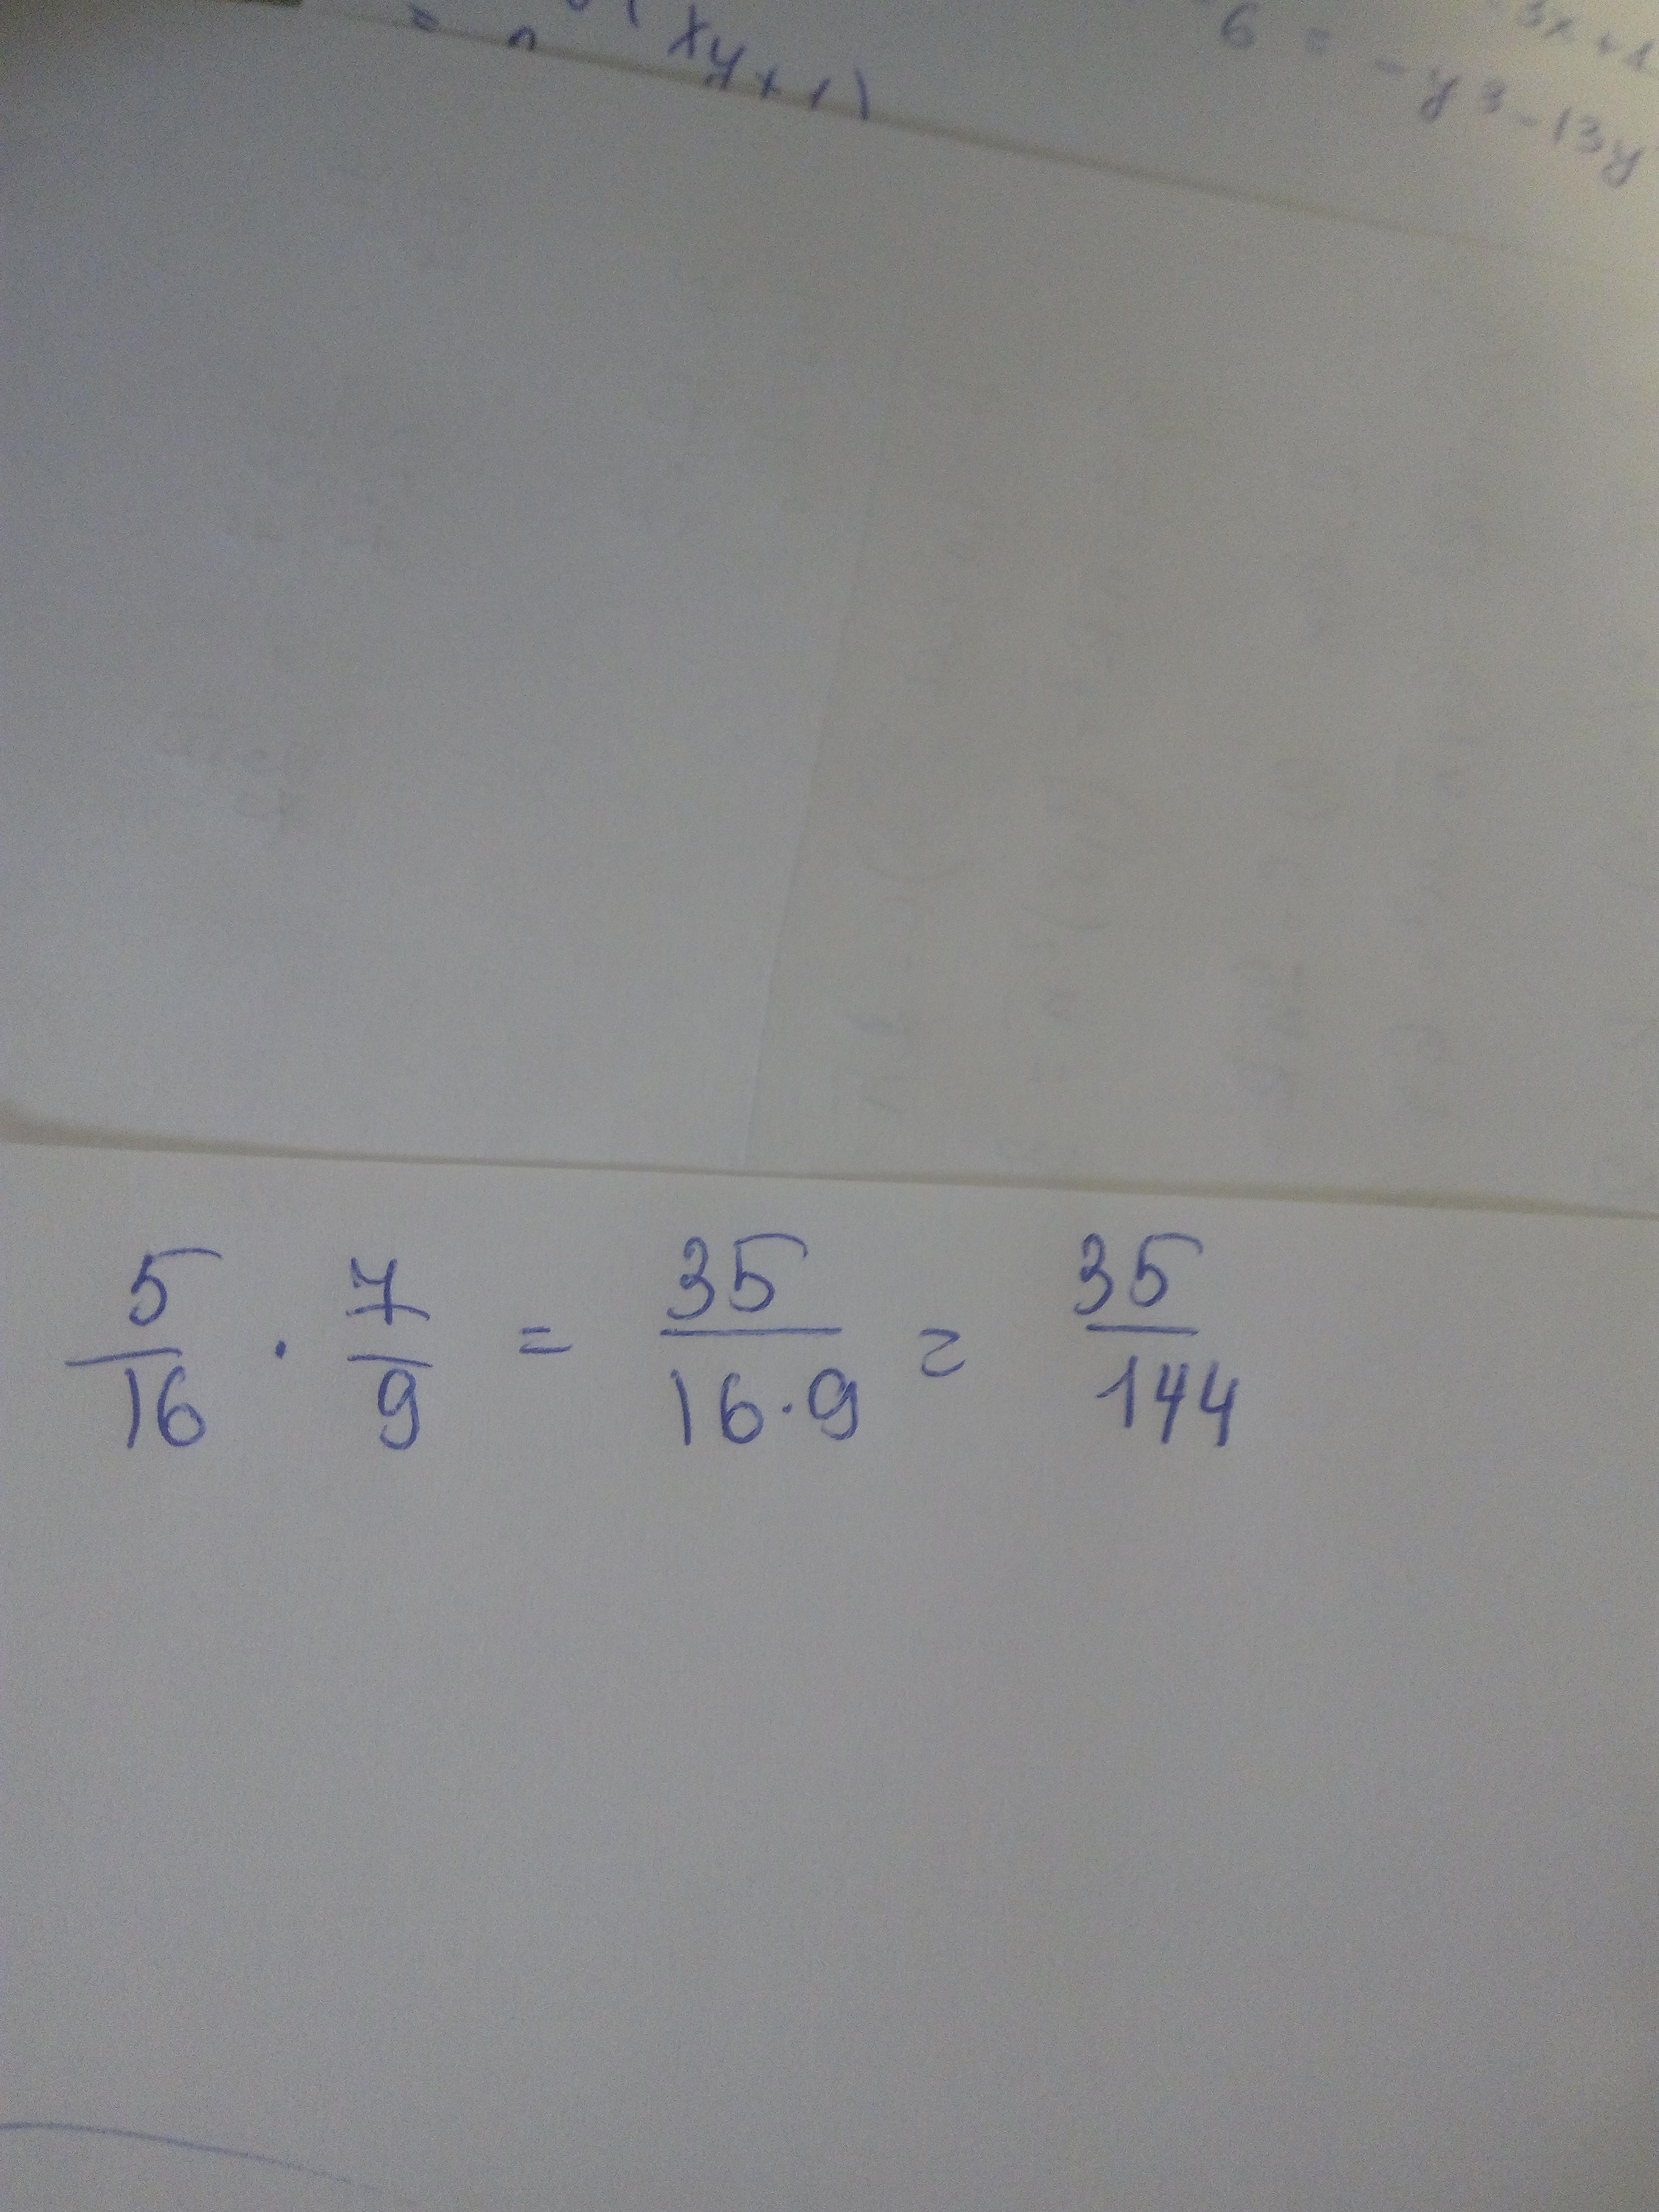 = (xy+1)
3x+1
6 = -y3-13y
5/16 · 7/9 = 35/16·9 = 35/144